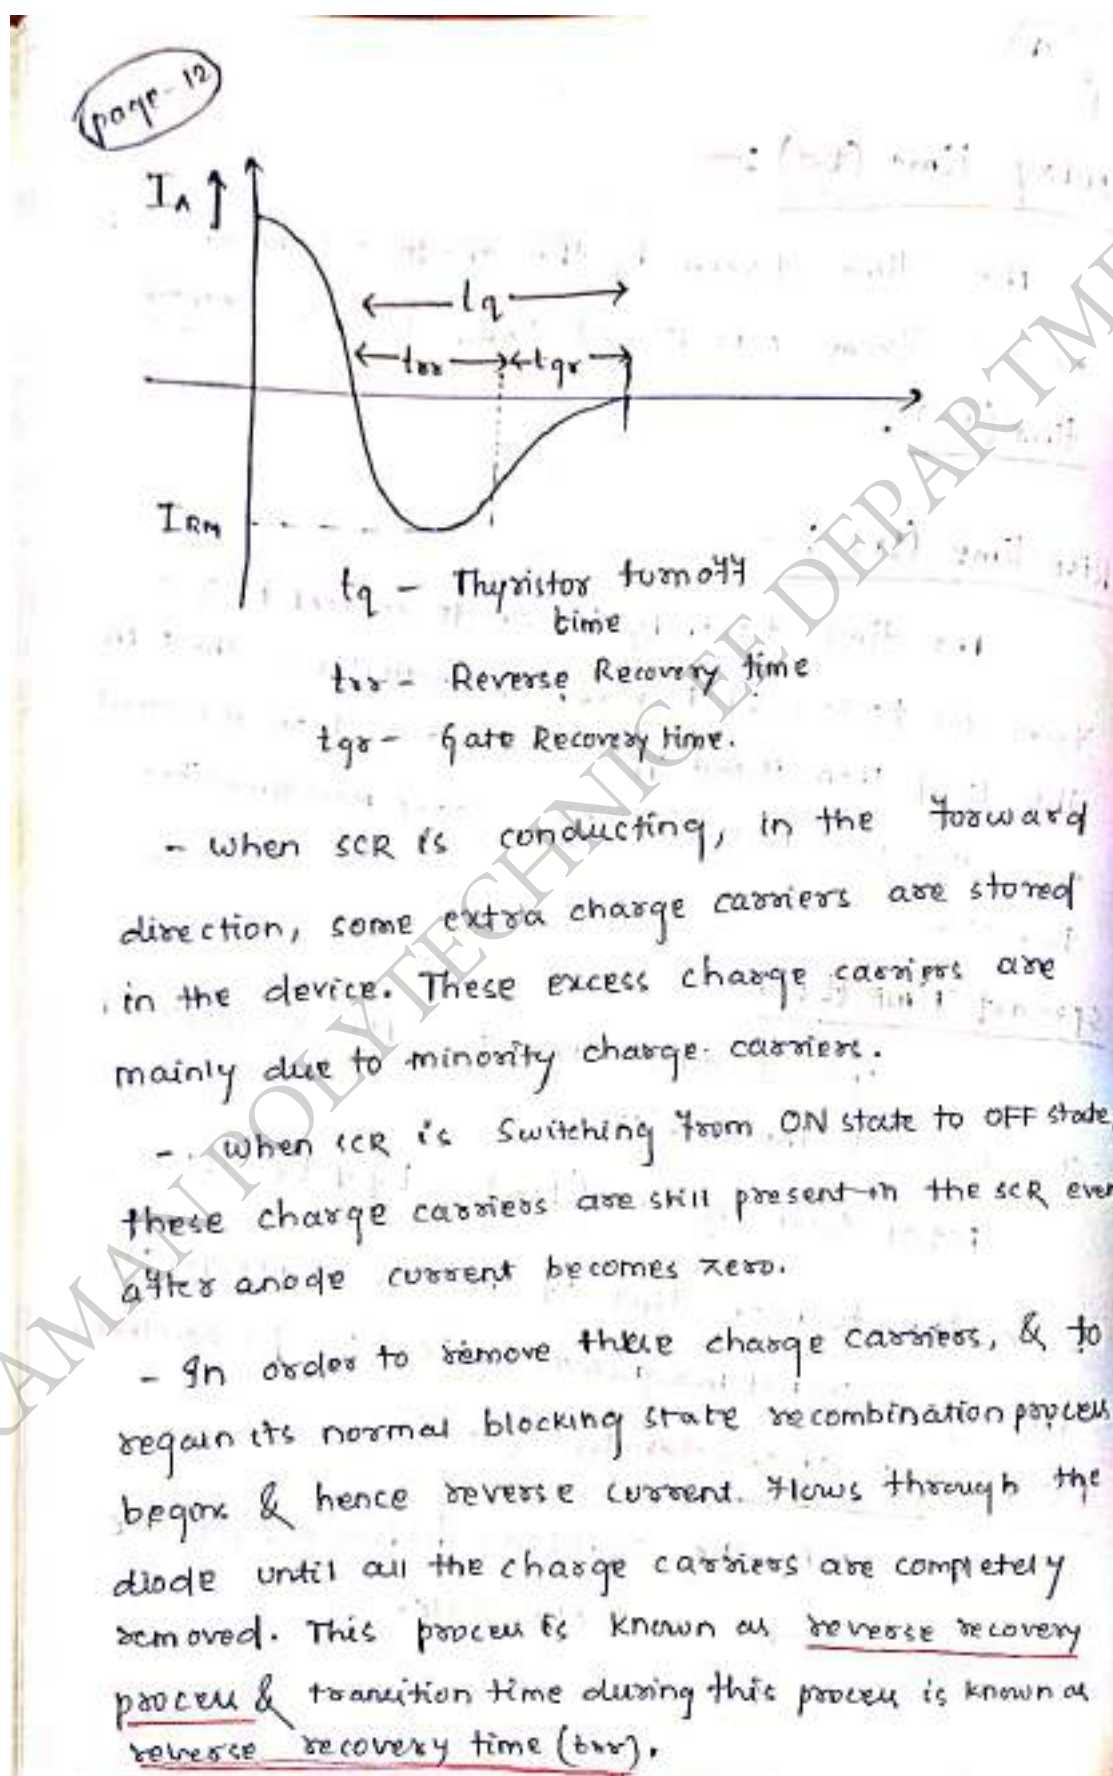 page-12
I_A
t_q
t_rr
t_gr
I_RM
t_q - Thyristor turnoff
time
t_rr - Reverse Recovery time
t_gr - Gate Recovery time.
- when SCR is conducting, in the forward
direction, some extra charge carriers are stored
in the device. These excess charge carriers are
mainly due to minority charge carriers.
- when SCR is Switching from ON state to OFF state,
these charge carriers are still present in the SCR even
after anode current becomes zero.
- In order to remove these charge carriers, & to
regain its normal blocking state recombination process
begins & hence reverse current flows through the
diode until all the charge carriers are completely
removed. This process is known as reverse recovery
process & transition time during this process is known as
reverse recovery time (t_rr).
AMAN POLYTECHNIC EE DEPARTME